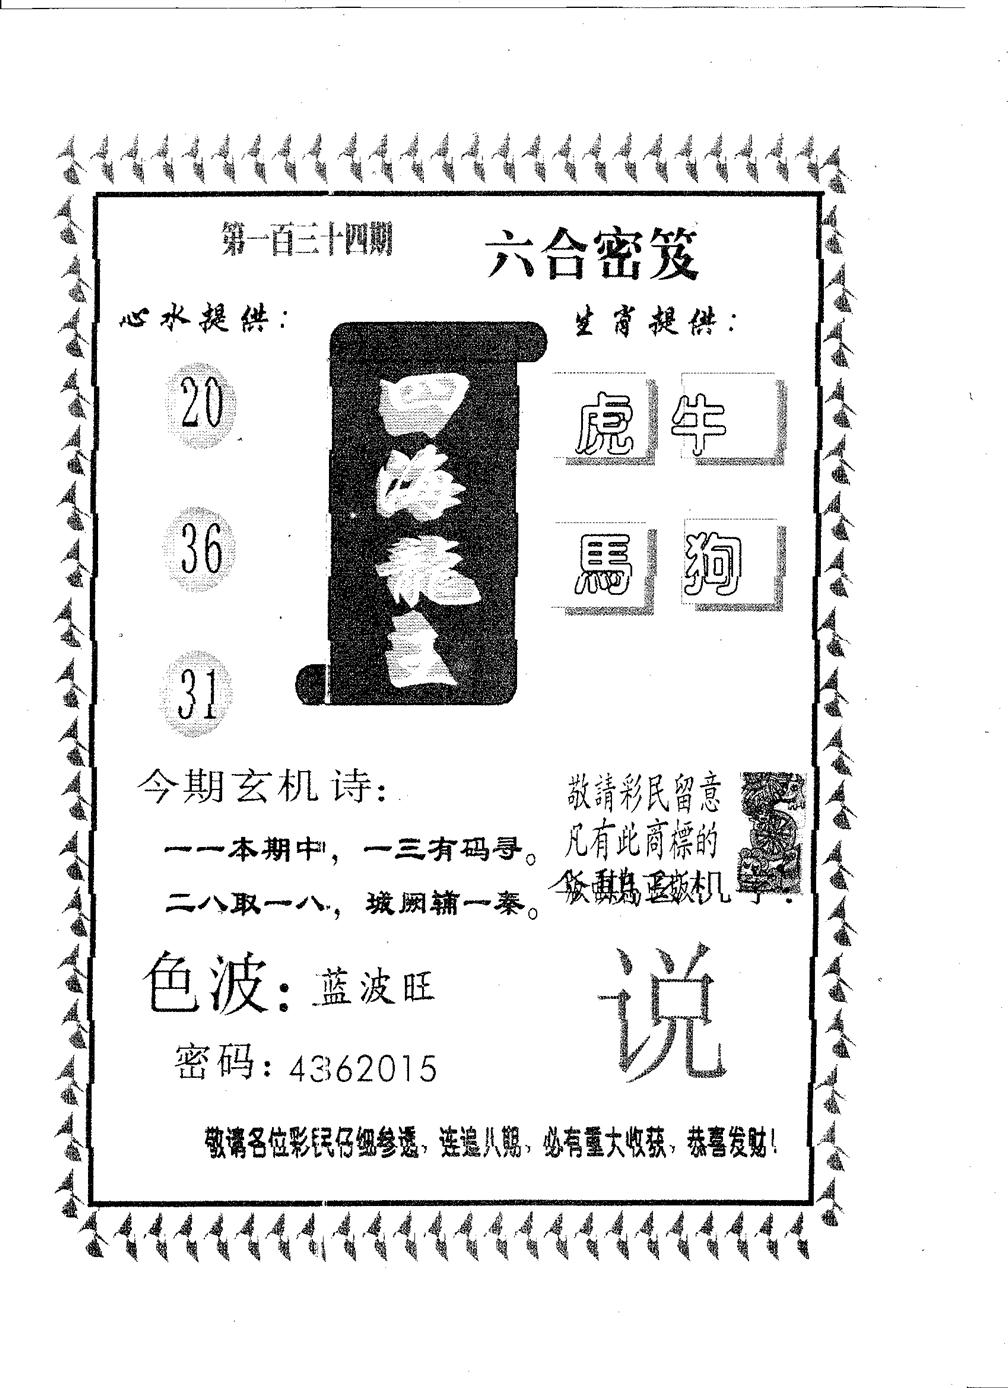 第一百三十四期
六合密笈
心水提供：
生肖提供：
20
36
31
四海龍
虎 牛
馬 狗
今期玄机诗：
一一本期中，一三有码寻。
二八取一八，城阙辅一秦。
敬請彩民留意
凡有此商標的
色波：蓝波旺
密码：4362015
说
敬请各位彩民仔细参透，连追八期，必有重大收获，恭喜发财！